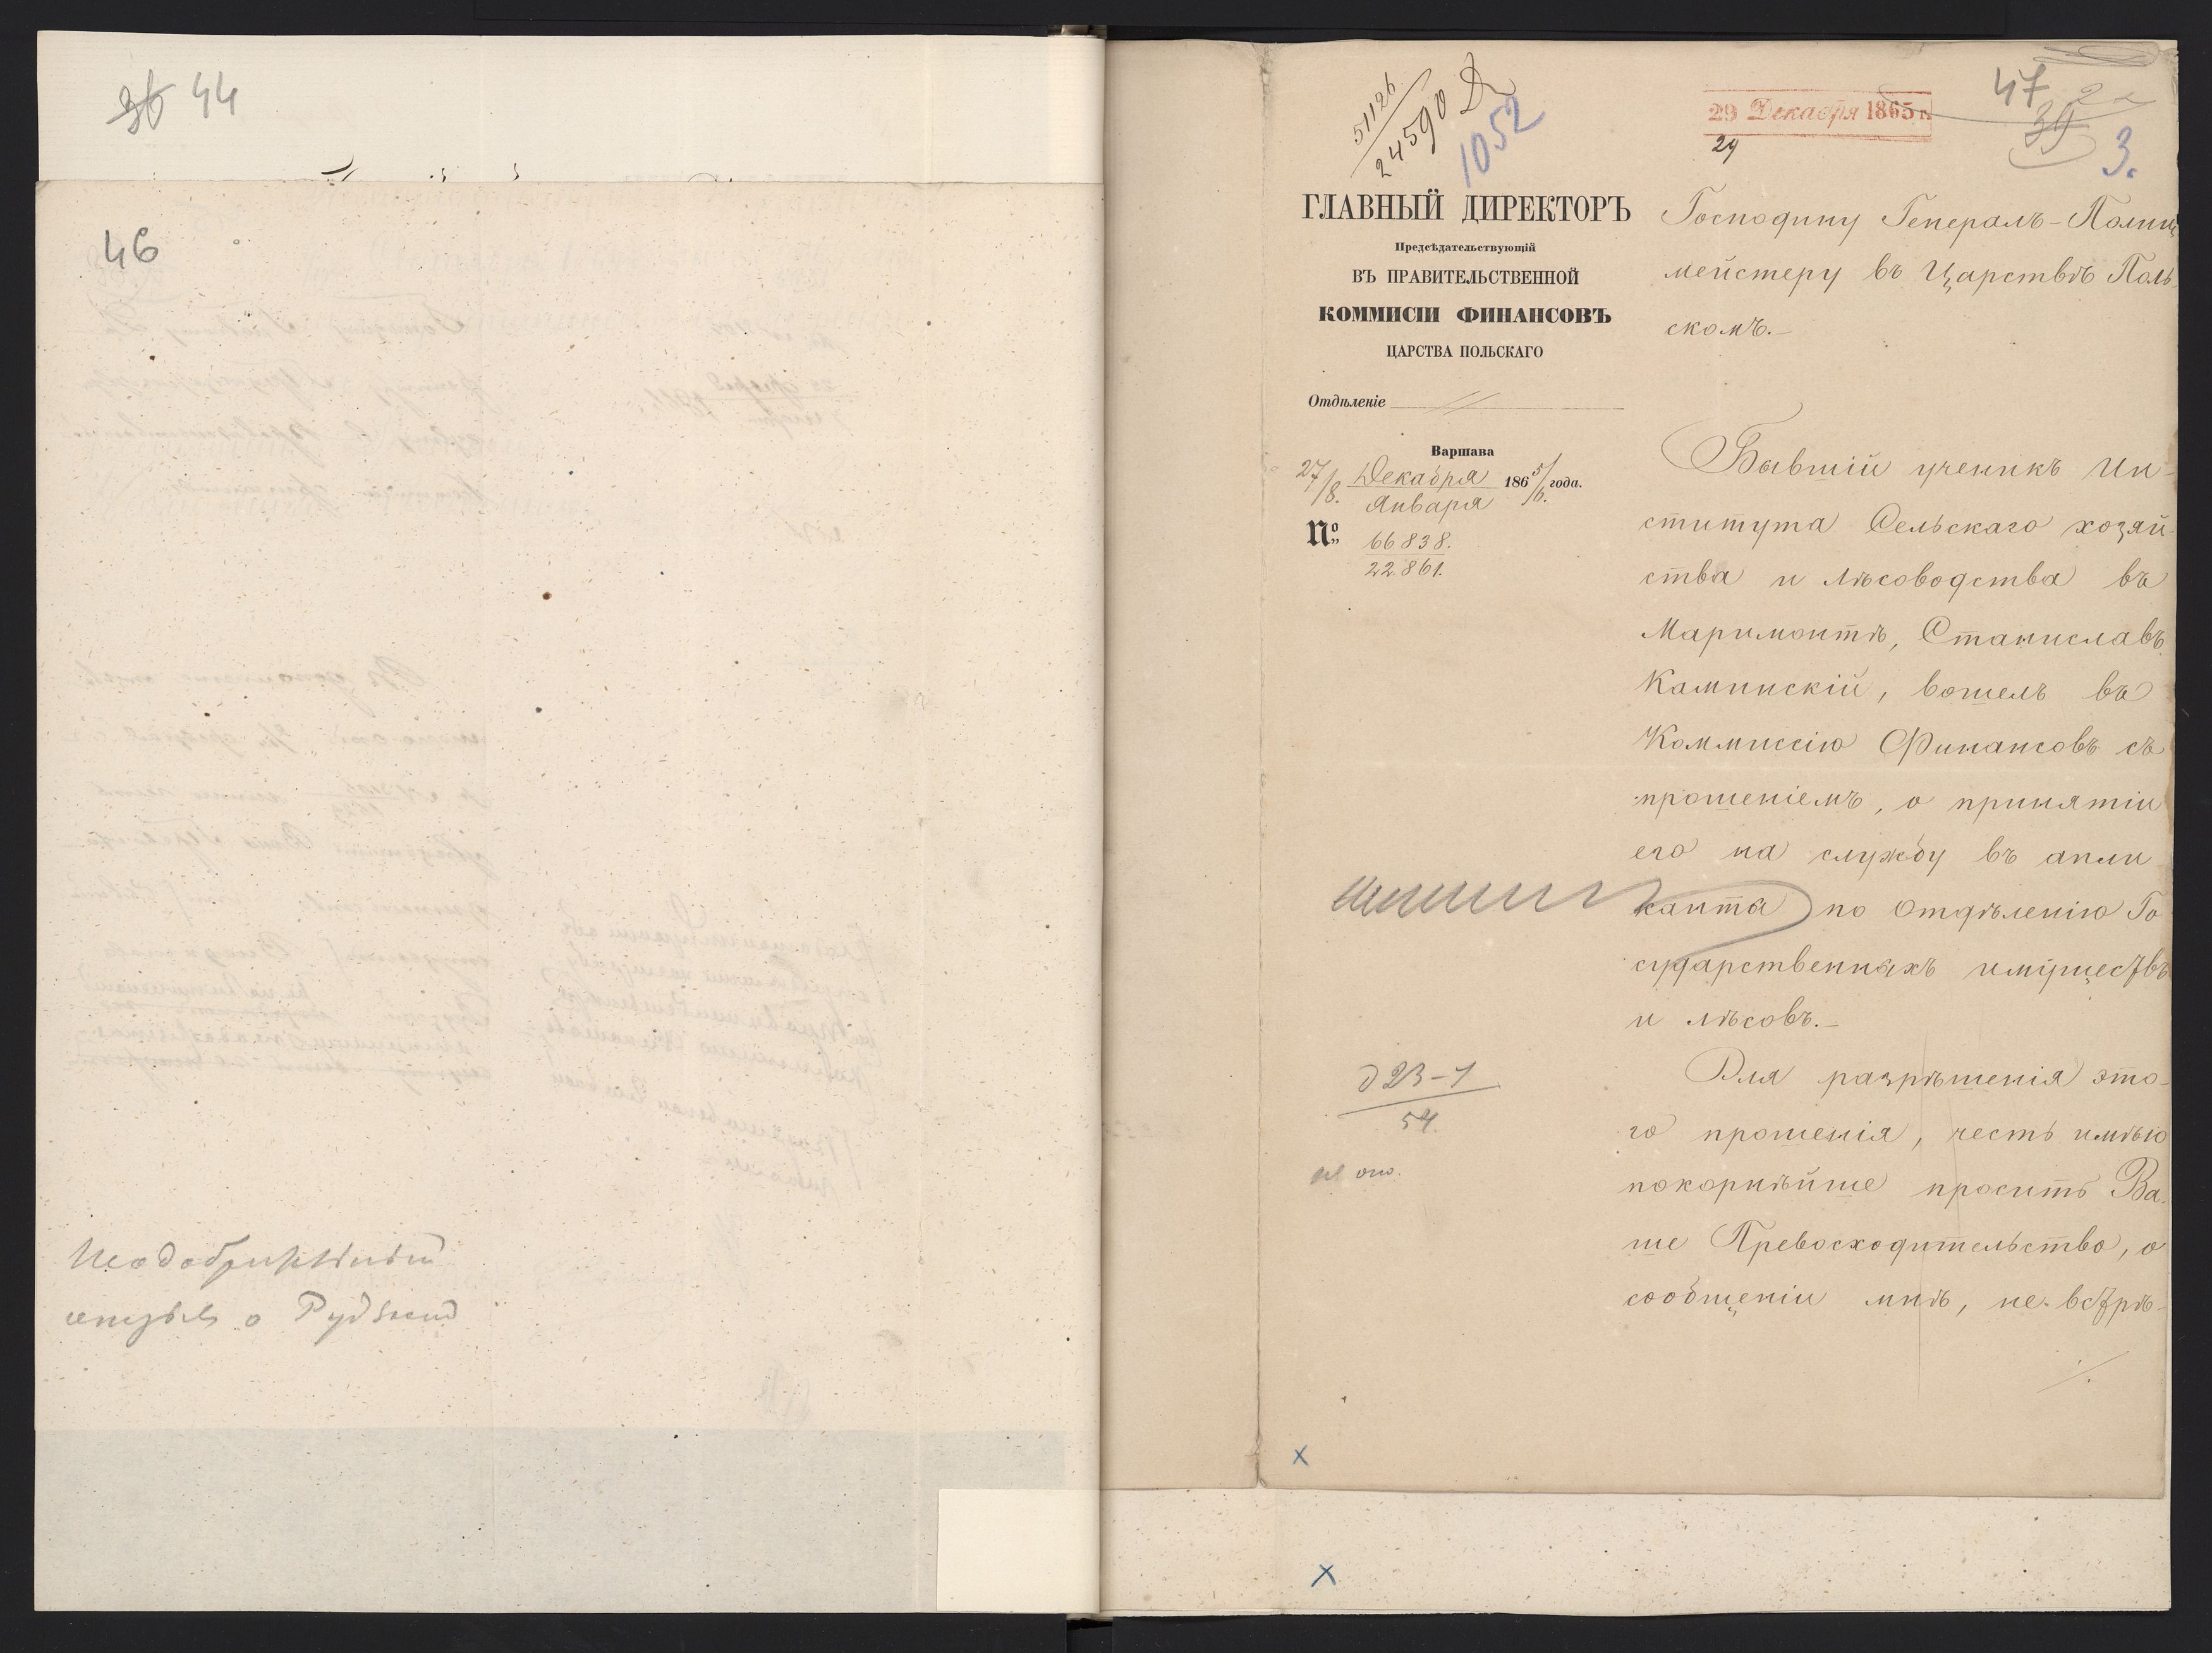 36 44
46
отзывъ о
51126
24590
1052
29 Декабря 1865 г.
29
47
39
3.
ГЛАВНЫЙ ДИРЕКТОРЪ
Предсѣдательствующій
ВЪ ПРАВИТЕЛЬСТВЕННОЙ
КОММИСІИ ФИНАНСОВЪ
ЦАРСТВА ПОЛЬСКАГО
Отдѣленіе
Варшава
27/8. Декабря Января 1865/6. года.
№ 66.838.
22.861.
Господину Генералъ-Полиц
мейстеру въ Царствѣ Поль-
скомъ.-
Бывшій ученикъ Ин-
ститута Сельскаго хозяй
ства и лѣсоводства въ
Маримонтѣ, Станиславъ
Каминскій, вошелъ въ
Коммиссію Финансовъ съ
прошеніемъ, о принятіи
его на службу въ апли
канта по Отдѣленію Го
сударственныхъ имуществъ
и лѣсовъ.-
Для разрѣшенія это-
го прошенія, честь имѣю
покорнѣйше просить Ва-
ше Превосходительство, о
сообщеніи мнѣ, не встрѣ-
./.
д 23-1
54.
x
x